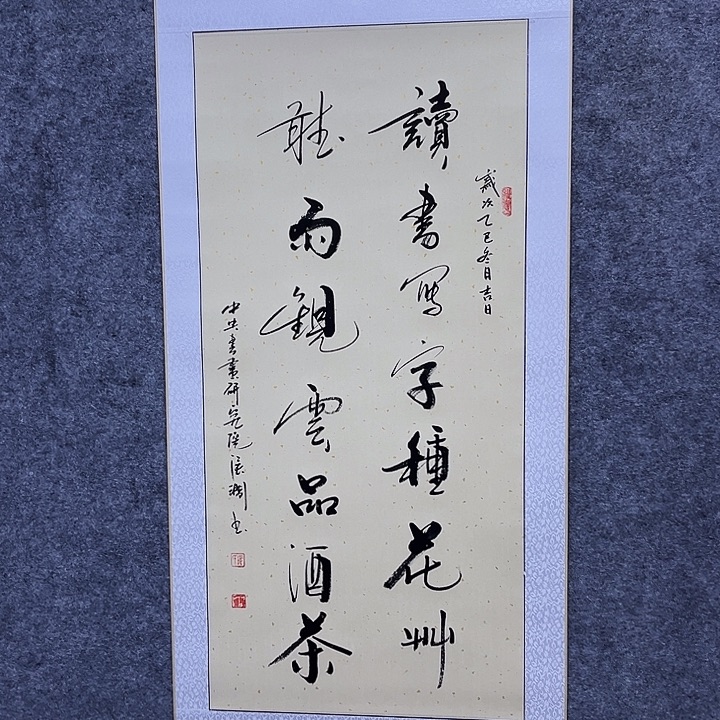 讀書寫字種花艸
聽雨觀雲品酒茶
歲次乙巳冬月吉日
中央書畫研究院張書